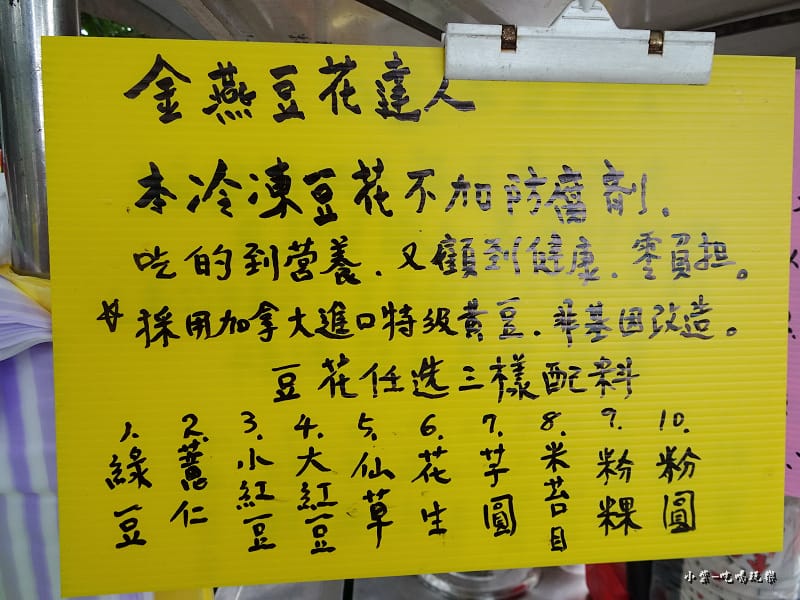 金燕豆花達人
本冷凍豆花不加防腐劑.
吃的到營養.又顧到健康.零負担。
採用加拿大進口特級黃豆.非基因改造。
豆花任选三樣配料
1.綠豆
2.薏仁
3.小紅豆
4.大紅豆
5.仙草
6.花生
7.芋圓
8.米苔目
9.粉粿
10.粉圓
小紫-吃喝玩樂